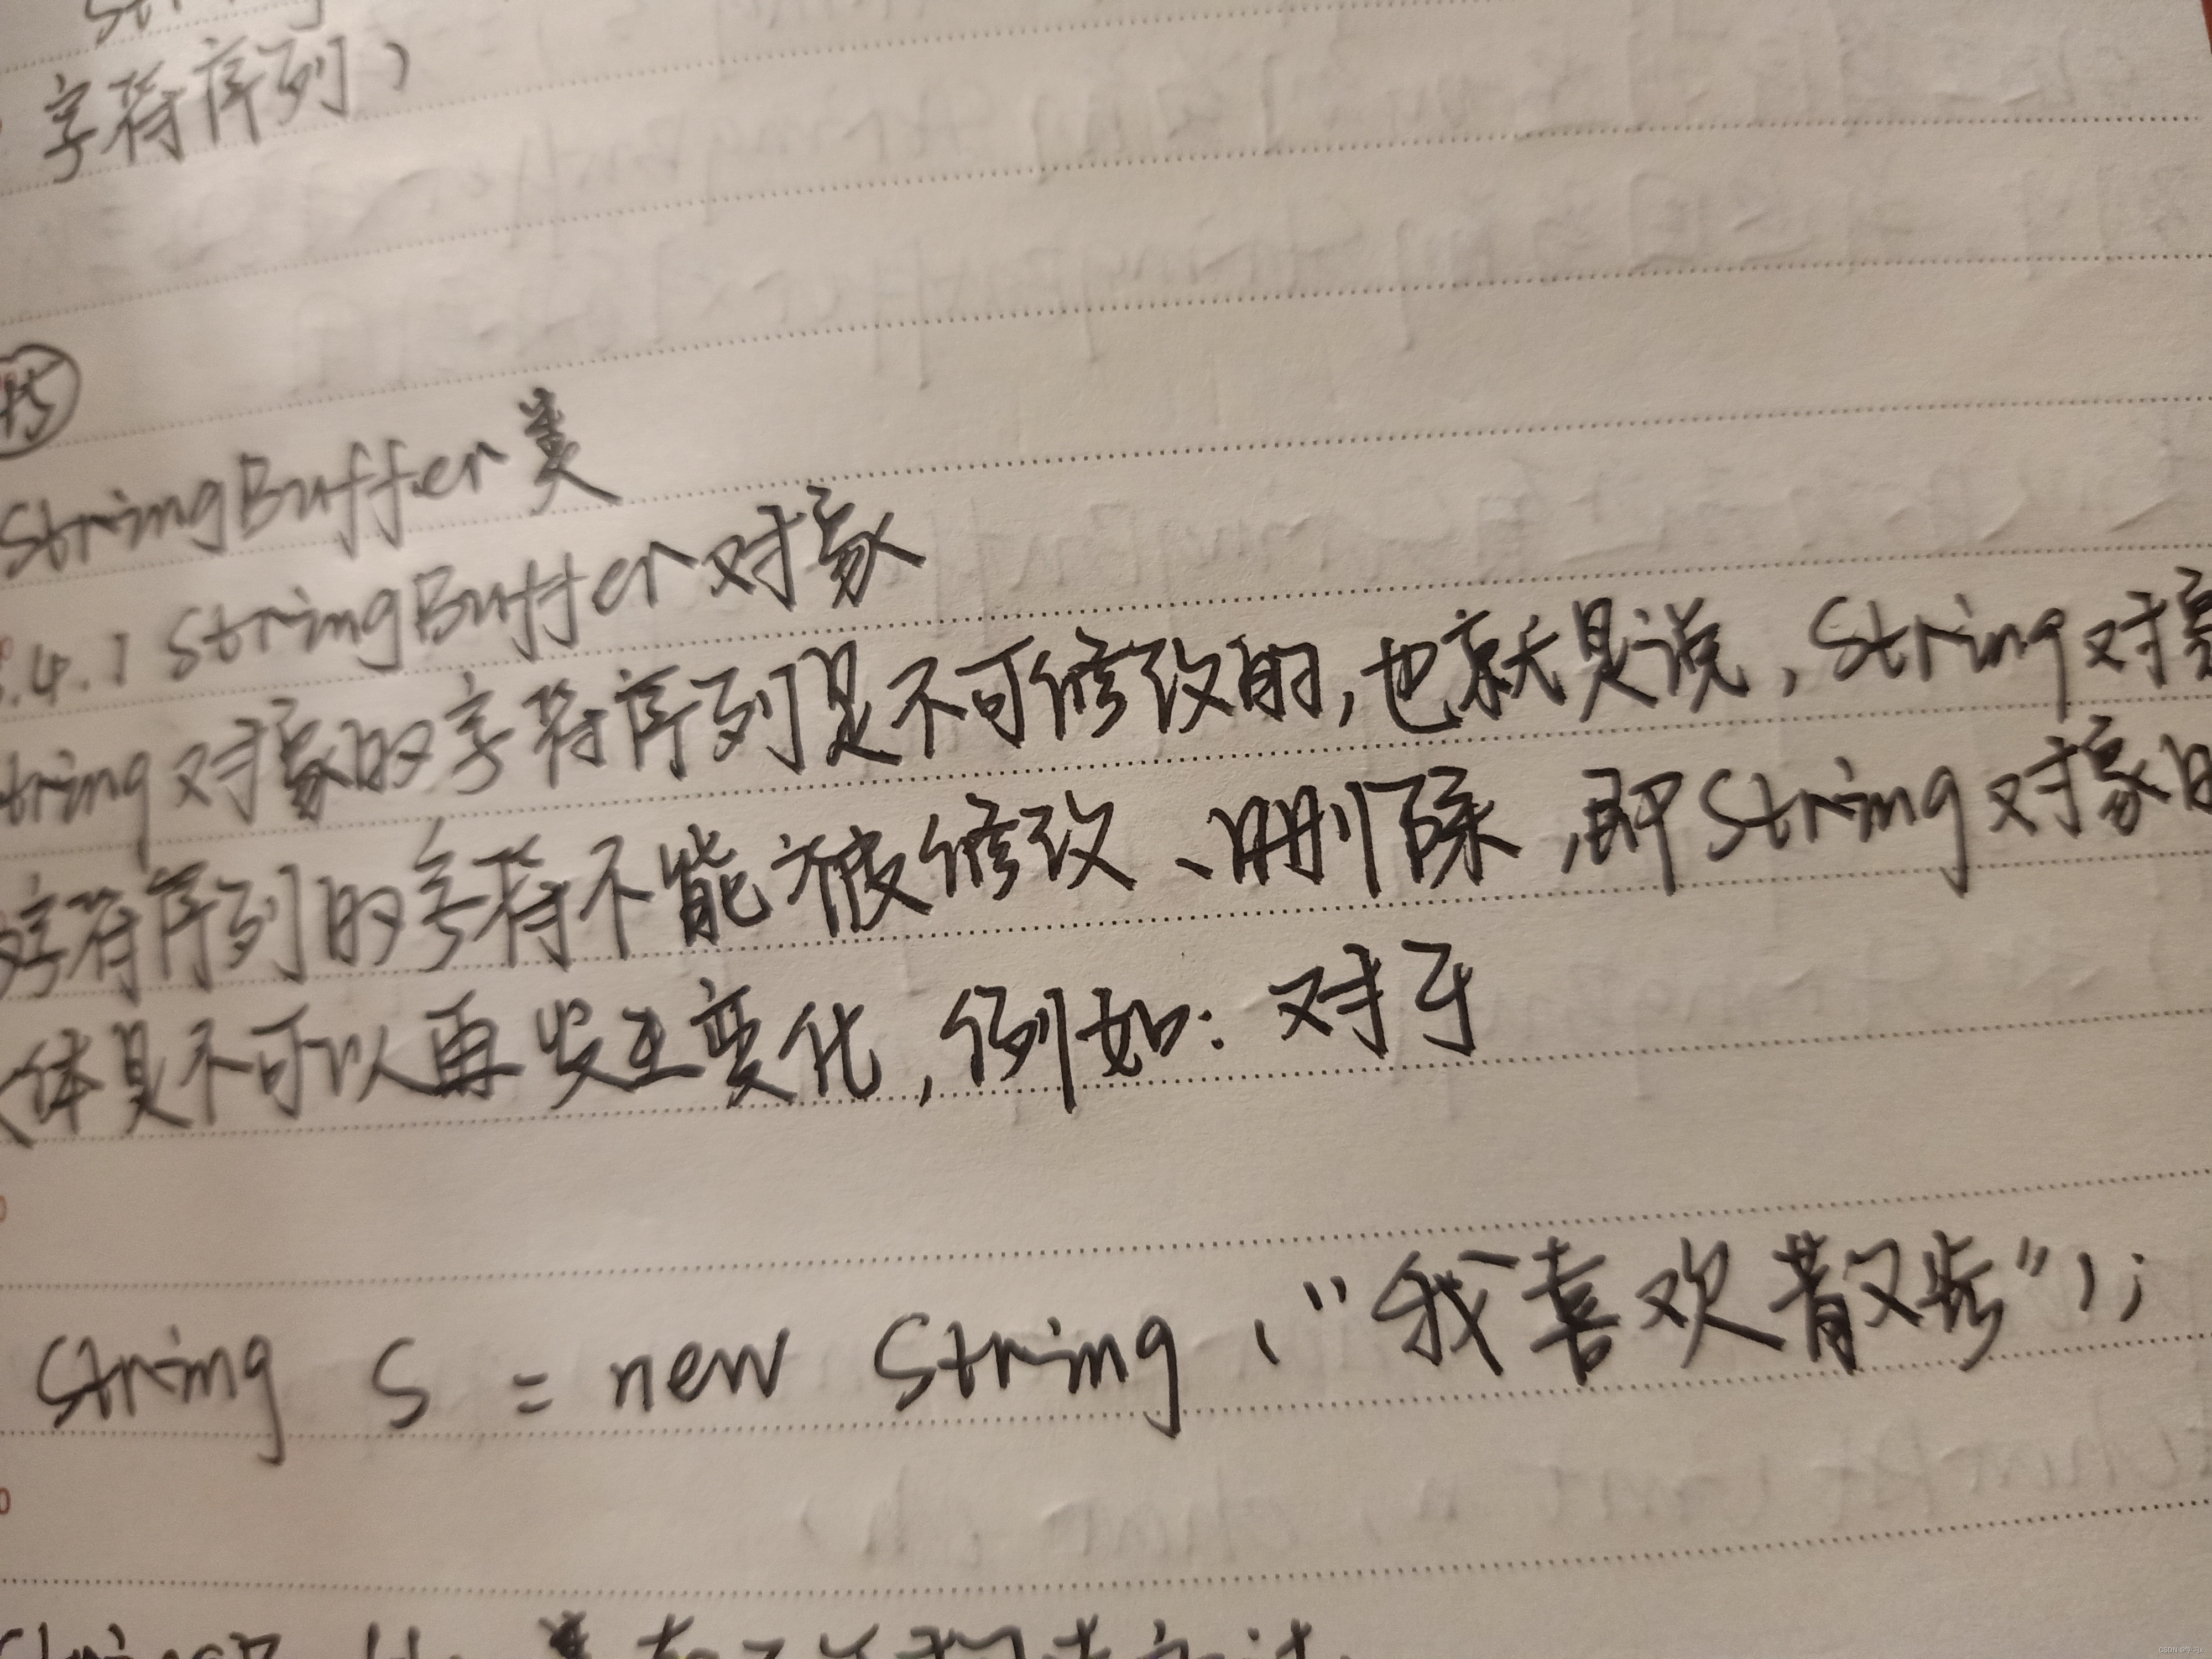 字符序列)
StringBuffer类
.4.1 StringBuffer对象
tring对象的字符序列是不可修改的,也就是说,String对象
字符序列的字符不能被修改、删除,即String对象的
体是不可以再发生变化,例如:对于
String S = new String ("我喜欢散步");